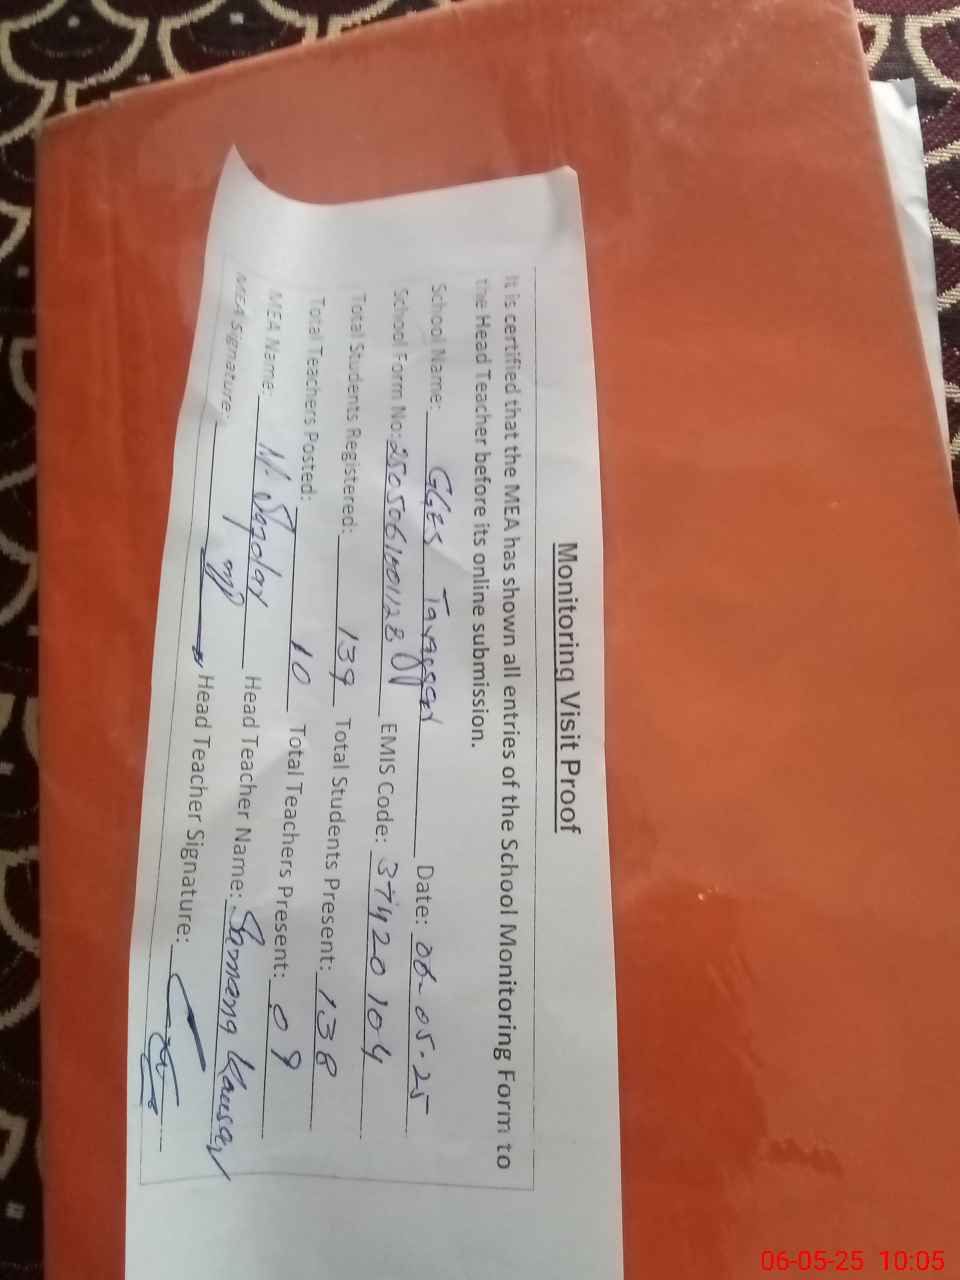 Monitoring Visit Proof
It is certified that the MEA has shown all entries of the School Monitoring Form to
the Head Teacher before its online submission.
School Name: GGES Date: 06-05-25
School Form No: EMIS Code: 37420104
Total Students Registered: 139 Total Students Present: 138
Total Teachers Posted: 10 Total Teachers Present: 09
MEA Name: Head Teacher Name: Kausar
MEA Signature: Head Teacher Signature:
06-05-25 10:05